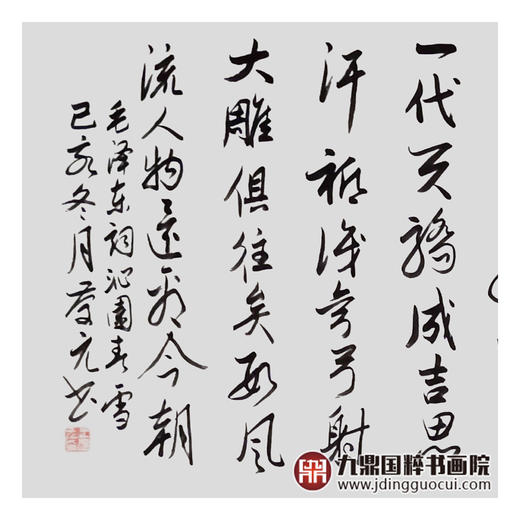 一代天骄成吉思
汗祗识弯弓射
大雕俱往矣数风
流人物还看今朝
毛泽东词沁园春雪
己亥冬月元书
九鼎国粹书画院
www.jdingguocui.com